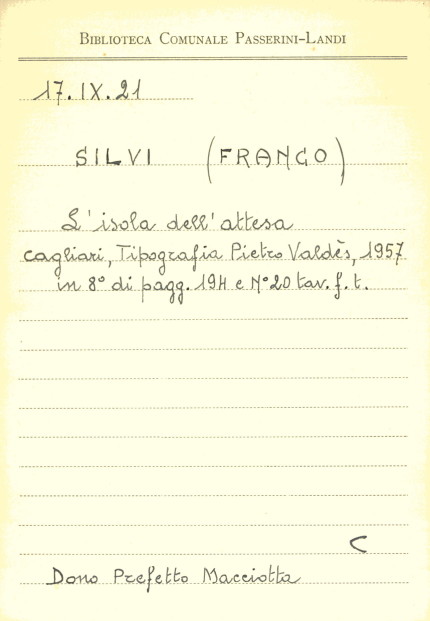 BIBLIOTECA COMUNALE PASSERINI-LANDI
17.IX.21
SILVI (FRANCO)
L'isola dell'attesa
Cagliari, Tipografia Pietro Valdès, 1957
in 8° di pagg. 194 e N° 20 tav. f. t.
C
Dono Prefetto Macciotta